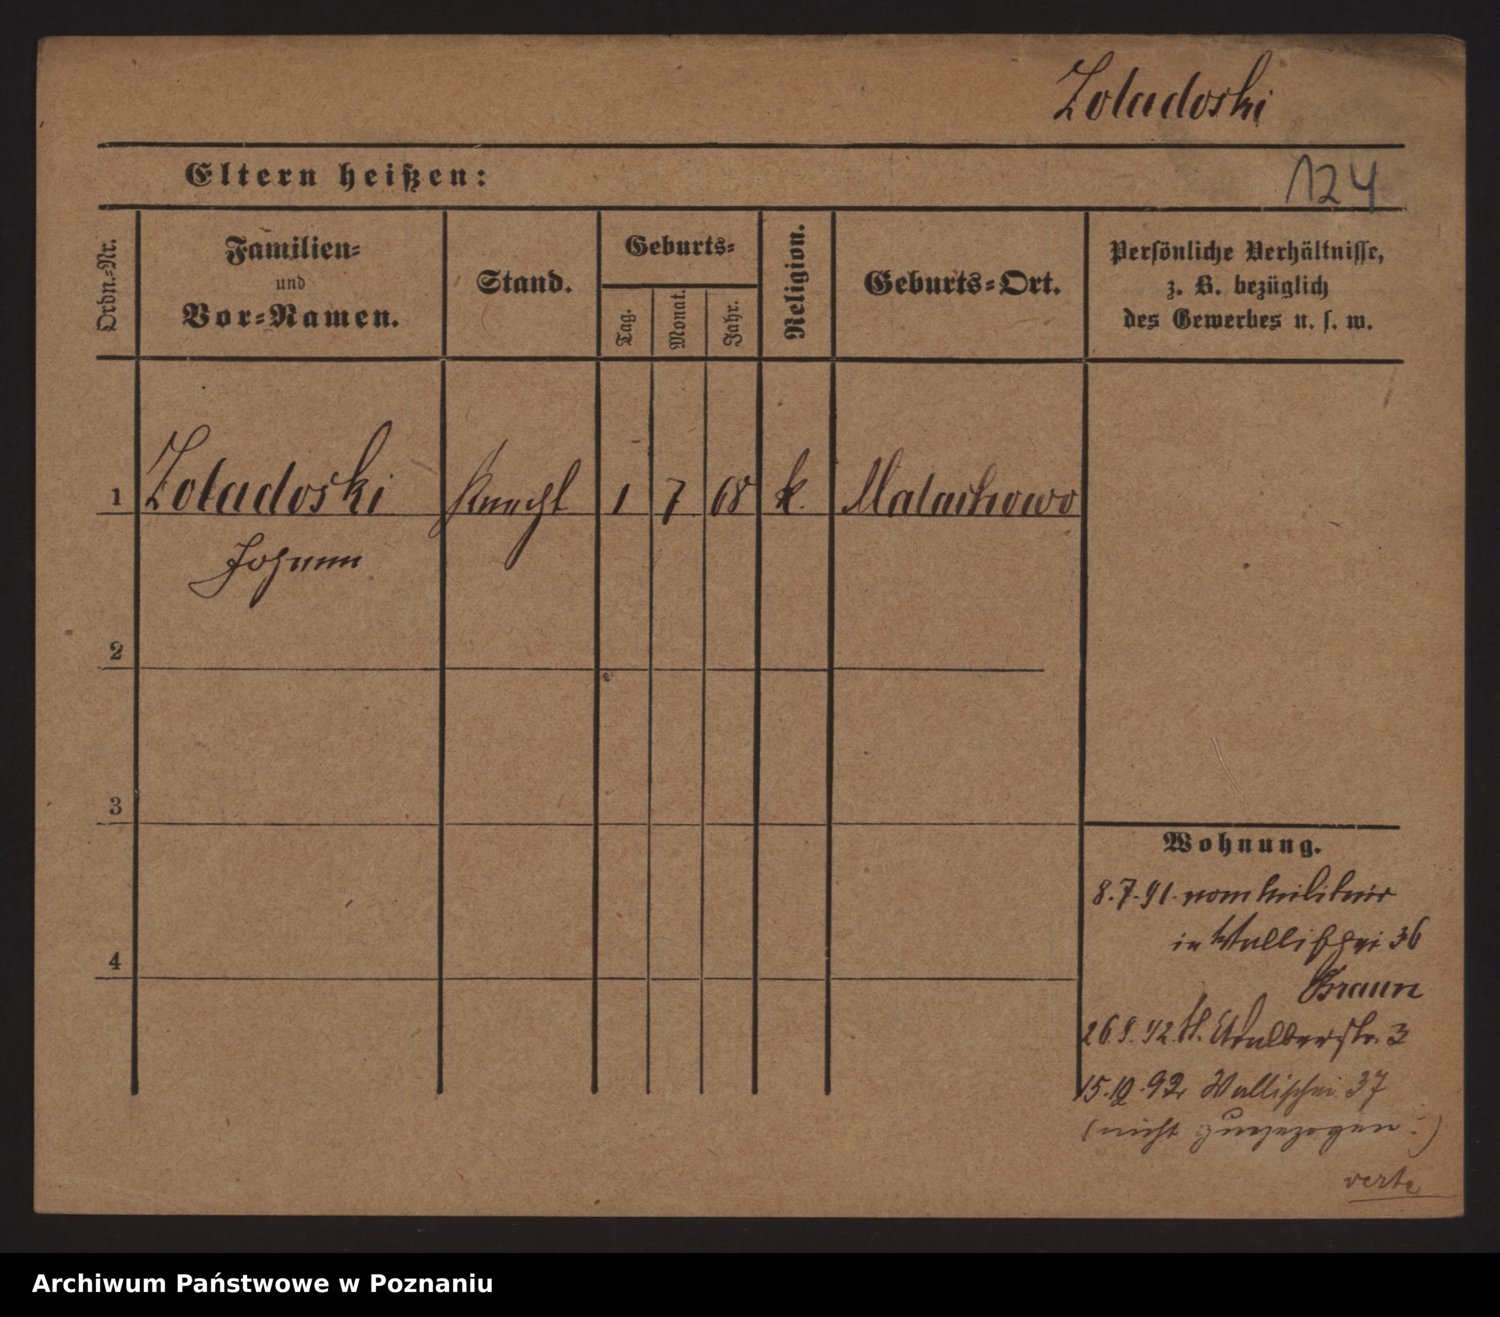 Zoladoski
Eltern heißen:
124
Ordn.-Nr.
Familien-
und
Vor-Namen.
Stand.
Geburts-
Tag.
Monat.
Jahr.
Religion.
Geburts-Ort.
Persönliche Verhältnisse,
z. B. bezüglich
des Gewerbes u. s. w.
1 Zoladoski Knecht 1 7 68 k. Malachowo
Johann
2
3
4
Wohnung.
8.7.91 vom Militair
in Wallischei 36
Braun
3
15.10.92 Wallischei 37
(nicht zugezogen.)
verte
Archiwum Państwowe w Poznaniu